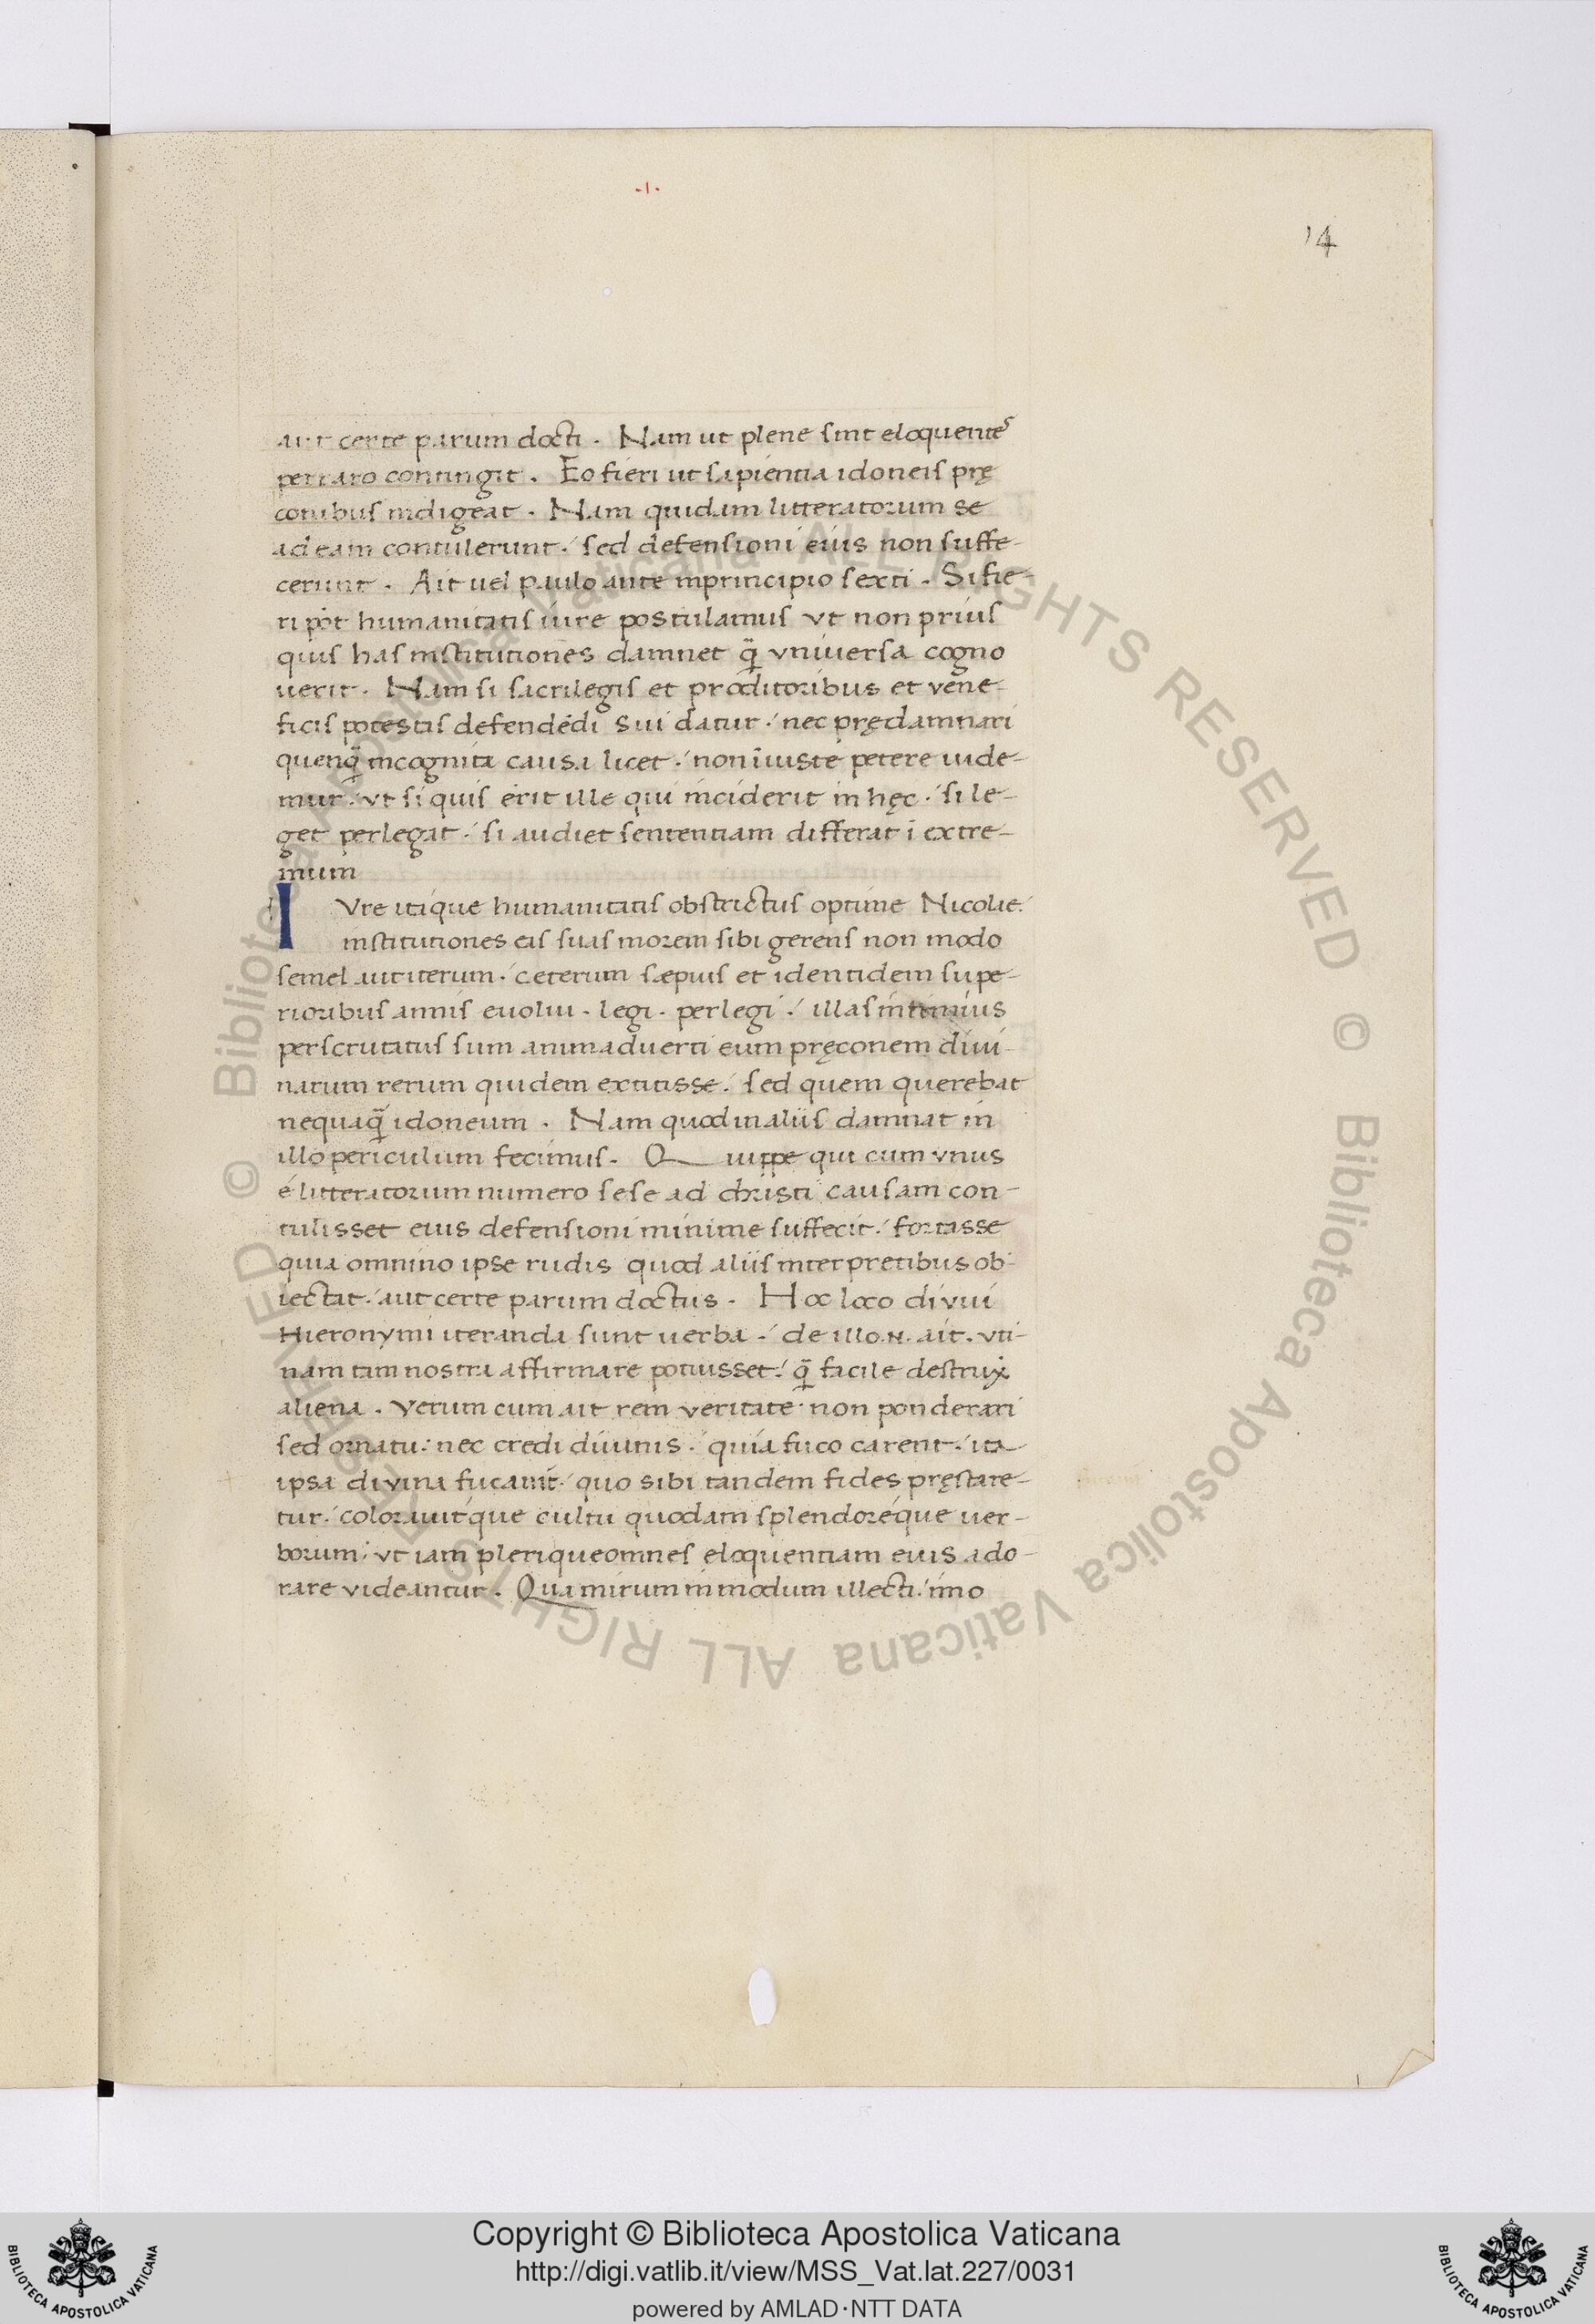 .I.
14
aut certe parum docti. Nam ut plene sint eloquentes
perraro contingit. Eo fieri ut sapientia idoneis prę
conibus indigeat. Nam quidam litteratorum se
ad eam contulerunt: sed defensioni eius non suffe-
cerunt. Ait uel paulo ante in principio sexti. Si fie-
ri pōt humanitatis iure postulamus ut non prius
quis has institutiones damnet q̄ vniuersa cogno
uerit. Nam si sacrilegis et proditoribus et vene-
ficis potestas defendēdi sui datur: nec prędamnari
quenq̄ incognita causa licet: non iniuste petere uide-
mur: vt si quis erit ille qui inciderit in hęc: si le-
get perlegat: si audiet sententiam differat ī extre-
mum
IVre itáque humanitatis obstrictus optime Nicolae:
institutiones eas suas morem sibi gerens non modo
semel aut iterum: ceterum sæpius et identidem supe-
rioribus annis euolui. legi. perlegi: illas intimius
perscrutatus sum animaduerti eum pręconem diui-
narum rerum quidem extitisse: sed quem querebat
nequaq̄ idoneum. Nam quod in aliis damnat in
illo periculum fecimus. Quippe qui cum vnus
é litteratorum numero sese ad christi causam con-
tulisset eius defensioni minime suffecit: fortasse
quia omnino ipse rudis quod aliis interpretibus ob-
iectat: aut certe parum doctus. Hoc loco diuui
Hieronymi iteranda sunt uerba: de illo.N. ait. vti-
nam tam nostra affirmare potuisset: q̄ facile destrux
aliena. Verum cum ait rem veritate non ponderari
sed ornatu: nec credi diuinis: quia fuco carent: ita
ipsa divina fucauit: quo sibi tandem fides pręstare-
tur: colorauitque cultu quodam splendoréque uer-
borum: vt iam plerique omnes eloquentiam eius ado-
rare videantur. Qua mirum in modum illecti: imo
© Biblioteca Apostolica Vaticana ALL RIGHTS RESERVED © Biblioteca Apostolica Vaticana ALL RIGHTS RESERVED
Copyright © Biblioteca Apostolica Vaticana
http://digi.vatlib.it/view/MSS_Vat.lat.227/0031
powered by AMLAD·NTT DATA
BIBLIOTECA APOSTOLICA VATICANA
BIBLIOTECA APOSTOLICA VATICANA